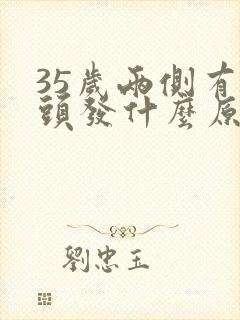 35歲兩側有
頭發什麼原
劉忠玉